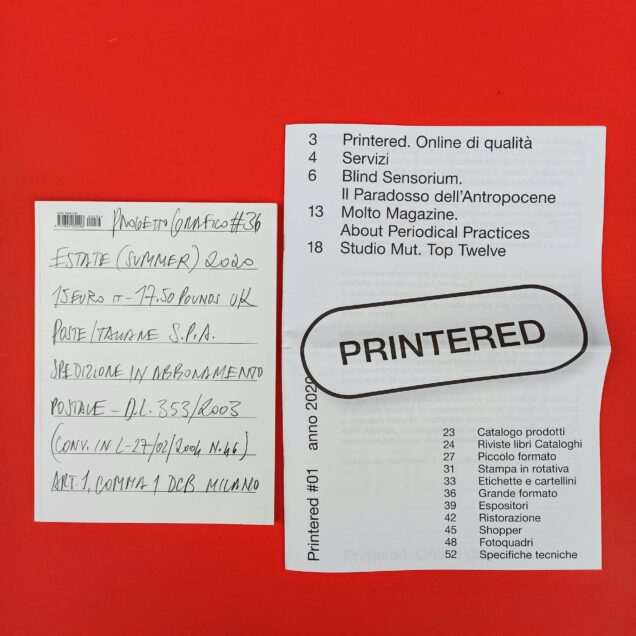 PROGETTO GRAFICO #36
ESTATE (SUMMER) 2020
15 EURO IT - 17.50 POUNDS UK
POSTE ITALIANE S.P.A.
SPEDIZIONE IN ABBONAMENTO
POSTALE - D.L. 353/2003
(CONV. IN L-27/02/2004 N.46)
ART. 1, COMMA 1 DCB MILANO
3 Printered. Online di qualità
4 Servizi
6 Blind Sensorium.
Il Paradosso dell'Antropocene
13 Molto Magazine.
About Periodical Practices
18 Studio Mut. Top Twelve
PRINTERED
Printered #01 anno 2020
23 Catalogo prodotti
24 Riviste libri Cataloghi
27 Piccolo formato
31 Stampa in rotativa
33 Etichette e cartellini
36 Grande formato
39 Espositori
42 Ristorazione
45 Shopper
48 Fotoquadri
52 Specifiche tecniche